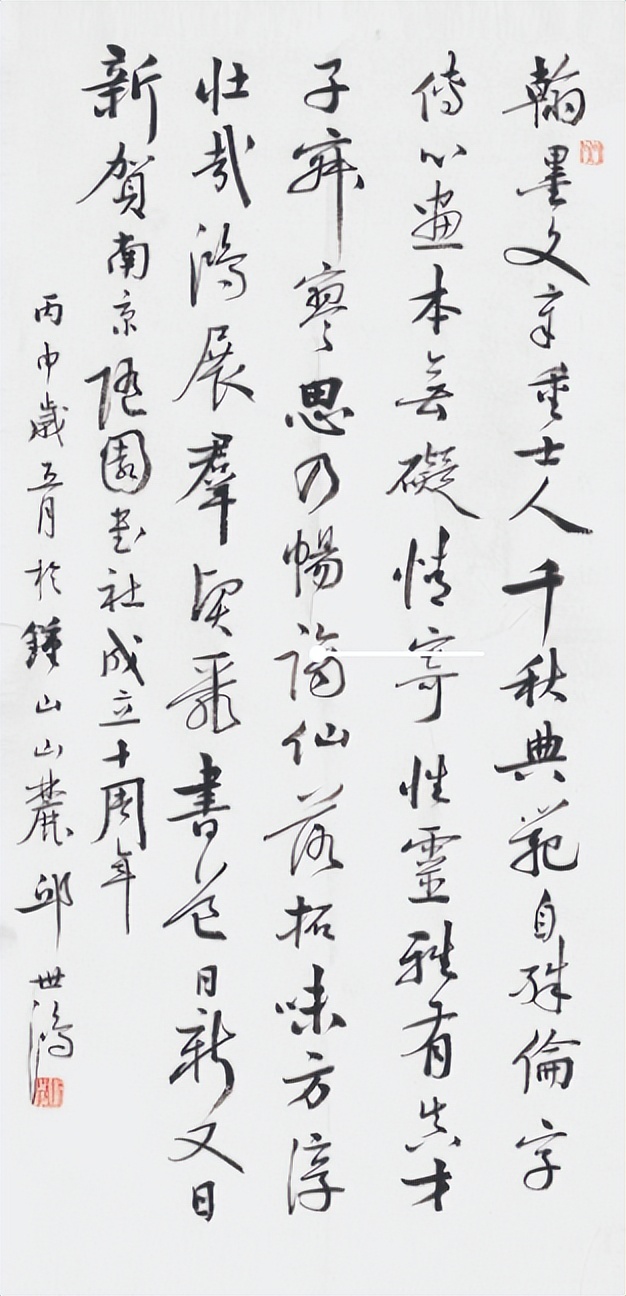 翰墨文章重士人千秋典範自殊倫字
傳心畫本無礙情寄性靈雅有真才
子寂寥思乃暢謫仙落拓味方淳
壯哉鴻展羣賢書苑日新又日
新賀南京随園書社成立十周年
丙申歲五月於鍾山山麓邱世鴻